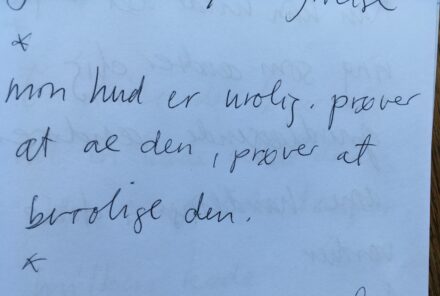 *
min hud er urolig. prøver
at ae den, prøver at
berolige den.
*